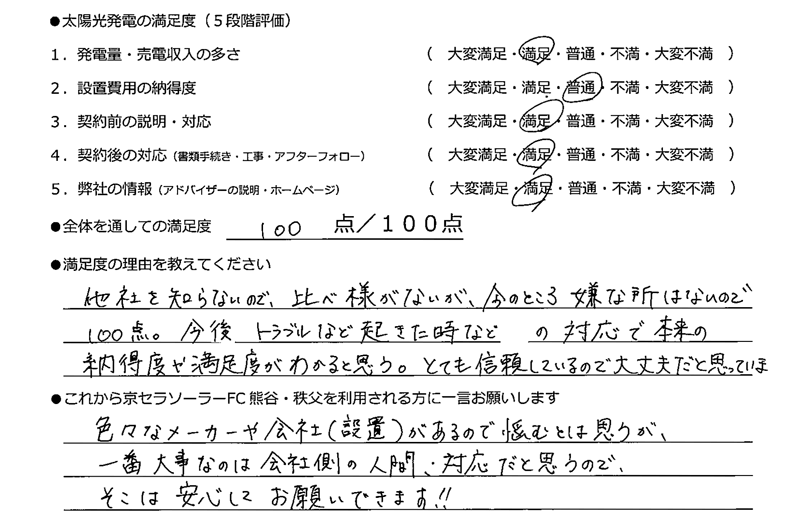 ●太陽光発電の満足度（５段階評価）
１．発電量・売電収入の多さ （ 大変満足・満足・普通・不満・大変不満 ）
２．設置費用の納得度 （ 大変満足・満足・普通・不満・大変不満 ）
３．契約前の説明・対応 （ 大変満足・満足・普通・不満・大変不満 ）
４．契約後の対応（書類手続き・工事・アフターフォロー） （ 大変満足・満足・普通・不満・大変不満 ）
５．弊社の情報（アドバイザーの説明・ホームページ） （ 大変満足・満足・普通・不満・大変不満 ）
●全体を通しての満足度 100 点／１００点
●満足度の理由を教えてください
他社を知らないので、比べ様がないが、今のところ嫌な所はないので
100点。今後 トラブルなど起きた時など の対応で本来の
納得度や満足度がわかると思う。とても信頼しているので大丈夫だと思っていま
●これから京セラソーラーFC熊谷・秩父を利用される方に一言お願いします
色々なメーカーや会社（設置）があるので悩むとは思うが、
一番大事なのは会社側の人間、対応だと思うので、
そこは安心してお願いできます!!